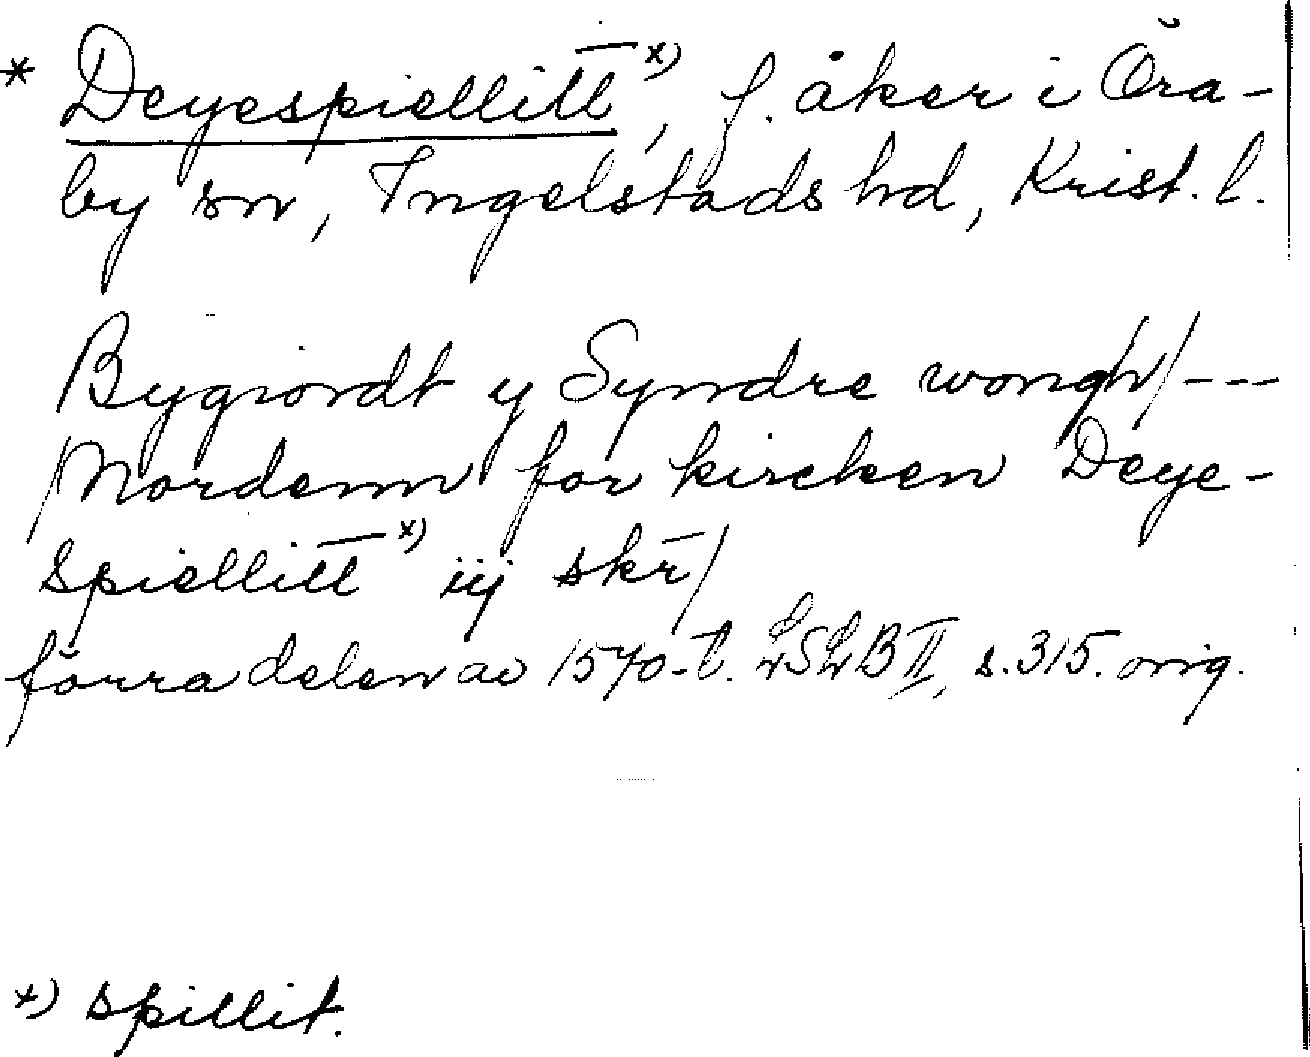 * Deyespiellitt̅ x), f. åker i Öra-
by sn, Ingelstads hd, Krist. l.
Bygiordt y Syndre wongh/ ---
/Nordenn for kircken Deye-
spiellitt̅ x) iij skr̅/
förra delen av 1570-t. LSLB II, s. 315. orig.
x) spillit.